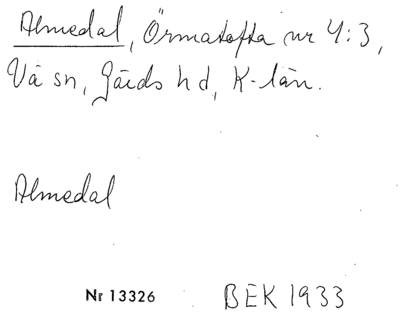 Almedal, Örmatofta nr 4:3,
Vä sn, Gärds hd, K-län.
Almedal
Nr 13326 BEK 1933